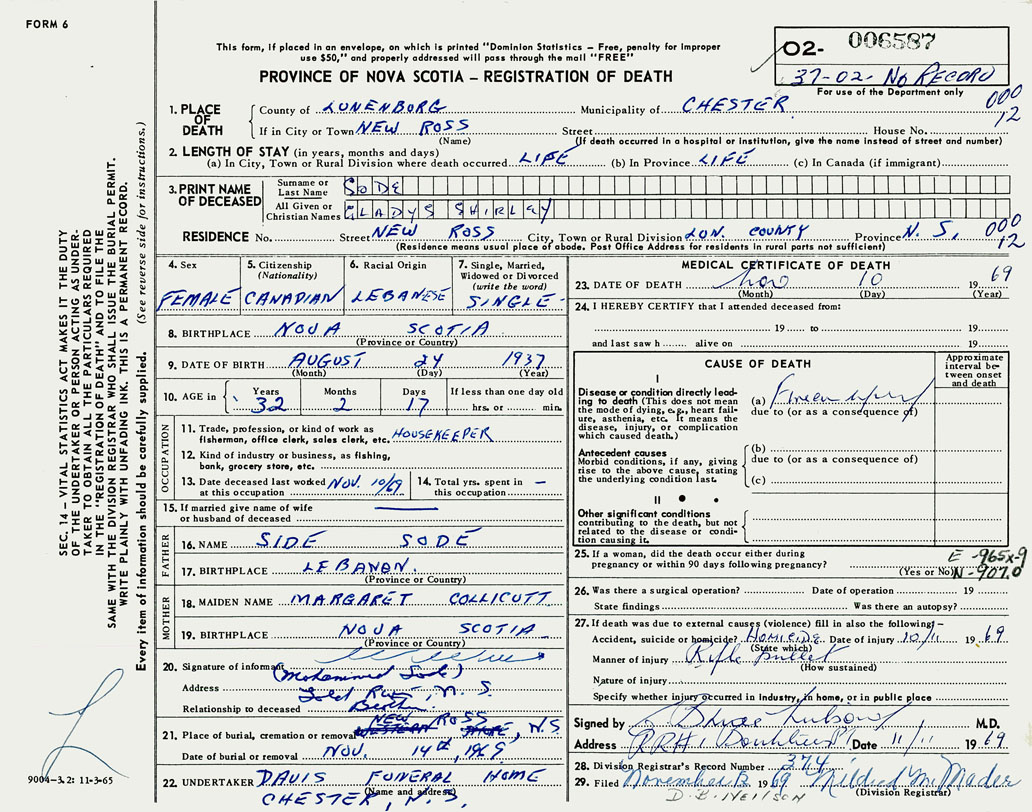 FORM 6
This form, if placed in an envelope, on which is printed "Dominion Statistics – Free, penalty for improper
use $50," and properly addressed will pass through the mail "FREE"
PROVINCE OF NOVA SCOTIA – REGISTRATION OF DEATH
02- 006587
37-02- No RECORD
For use of the Department only
000
12
1. PLACE OF DEATH County of LUNENBURG Municipality of CHESTER
If in City or Town NEW ROSS Street House No.
(Name) (If death occurred in a hospital or institution, give the name instead of street and number)
2. LENGTH OF STAY (in years, months and days)
(a) In City, Town or Rural Division where death occurred LIFE (b) In Province LIFE (c) In Canada (if immigrant)
3. PRINT NAME OF DECEASED
Surname or Last Name SODE
All Given or Christian Names GLADYS SHIRLEY
RESIDENCE No. Street NEW ROSS City, Town or Rural Division LUN. COUNTY Province N. S. 000
12
(Residence means usual place of abode. Post Office Address for residents in rural parts not sufficient)
4. Sex
FEMALE
5. Citizenship
(Nationality)
CANADIAN
6. Racial Origin
LEBANESE
7. Single, Married,
Widowed or Divorced
(write the word)
SINGLE
8. BIRTHPLACE NOVA SCOTIA
(Province or Country)
9. DATE OF BIRTH AUGUST 24 1937
(Month) (Day) (Year)
10. AGE in Years Months Days If less than one day old
32 2 17 hrs. or min.
OCCUPATION
11. Trade, profession, or kind of work as
fisherman, office clerk, sales clerk, etc. HOUSEKEEPER
12. Kind of industry or business, as fishing,
bank, grocery store, etc.
13. Date deceased last worked at this occupation NOV. 10/69
14. Total yrs. spent in this occupation –
15. If married give name of wife
or husband of deceased
FATHER
16. NAME SIDE SODE
17. BIRTHPLACE LEBANON.
(Province or Country)
MOTHER
18. MAIDEN NAME MARGARET COLLICUTT
19. BIRTHPLACE NOVA SCOTIA
(Province or Country)
20. Signature of informant
(Mohammed Sode)
Address N. S.
Relationship to deceased
NEW ROSS
21. Place of burial, cremation or removal N.S.
Date of burial or removal NOV. 14th, 1969
22. UNDERTAKER DAVIS FUNERAL HOME
(Name and address)
CHESTER, N.S.
MEDICAL CERTIFICATE OF DEATH
23. DATE OF DEATH Nov 10 1969
(Month) (Day) (Year)
24. I HEREBY CERTIFY that I attended deceased from:
19 to 19
and last saw h alive on 19
CAUSE OF DEATH
Approximate
interval between
onset
and death
I
Disease or condition directly leading
to death (This does not mean
the mode of dying, e.g., heart failure,
asthenia, etc. It means the
disease, injury, or complication
which caused death.)
(a)
due to (or as a consequence of)
Antecedent causes
Morbid conditions, if any, giving
rise to the above cause, stating
the underlying condition last.
(b)
due to (or as a consequence of)
(c)
II
Other significant conditions
contributing to the death, but not
related to the disease or condition
causing it.
25. If a woman, did the death occur either during
pregnancy or within 90 days following pregnancy? (Yes or No)
E -965x-9
N-907.0
26. Was there a surgical operation? Date of operation 19
State findings Was there an autopsy?
27. If death was due to external causes (violence) fill in also the following:
Accident, suicide or homicide? Homicide Date of injury 10/11 1969
(State which)
Manner of injury Rifle bullet
(How sustained)
Nature of injury
Specify whether injury occurred in Industry, in home, or in public place
Signed by M.D.
Address Date 11/11 1969
28. Division Registrar's Record Number 374
29. Filed November 1969 Mildred M. Mader
(Division Registrar)
SEC. 14 – VITAL STATISTICS ACT MAKES IT THE DUTY
OF THE UNDERTAKER OR PERSON ACTING AS UNDER-
TAKER TO OBTAIN ALL THE PARTICULARS REQUIRED
IN THE "REGISTRATION OF DEATH" AND TO FILE THE
SAME WITH THE DIVISION REGISTRAR WHO SHALL ISSUE THE BURIAL PERMIT.
WRITE PLAINLY WITH UNFADING INK. THIS IS A PERMANENT RECORD.
Every item of information should be carefully supplied. (See reverse side for instructions.)
9004-3.2: 11-3-65